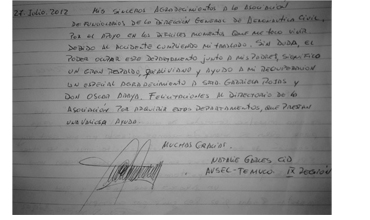 25. Julio. 2017 Mis sinceros agradecimientos a la Asociación
de Funcionarios de la Dirección General de Aeronáutica Civil,
por el apoyo en los difíciles momentos que me tocó vivir
debido al accidente cumpliendo mi traslado. Sin duda, el
poder ocupar este departamento junto a mis padres, significó
un gran y ayudó a mi recuperación
un especial agradecimiento a Srta. Gabriela Rojas y
Don Oscar Araya. Felicitaciones al Directorio de la
Asociación por estos departamentos, que prestan
ayuda.
Muchas Gracias.
Natalie Garcés Cid
AVSEC - Temuco IX Región